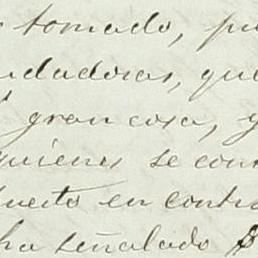 tomado, pu
dadoras, que
gran cosa, y
quienes se con
uesto en contra
ha señalado $